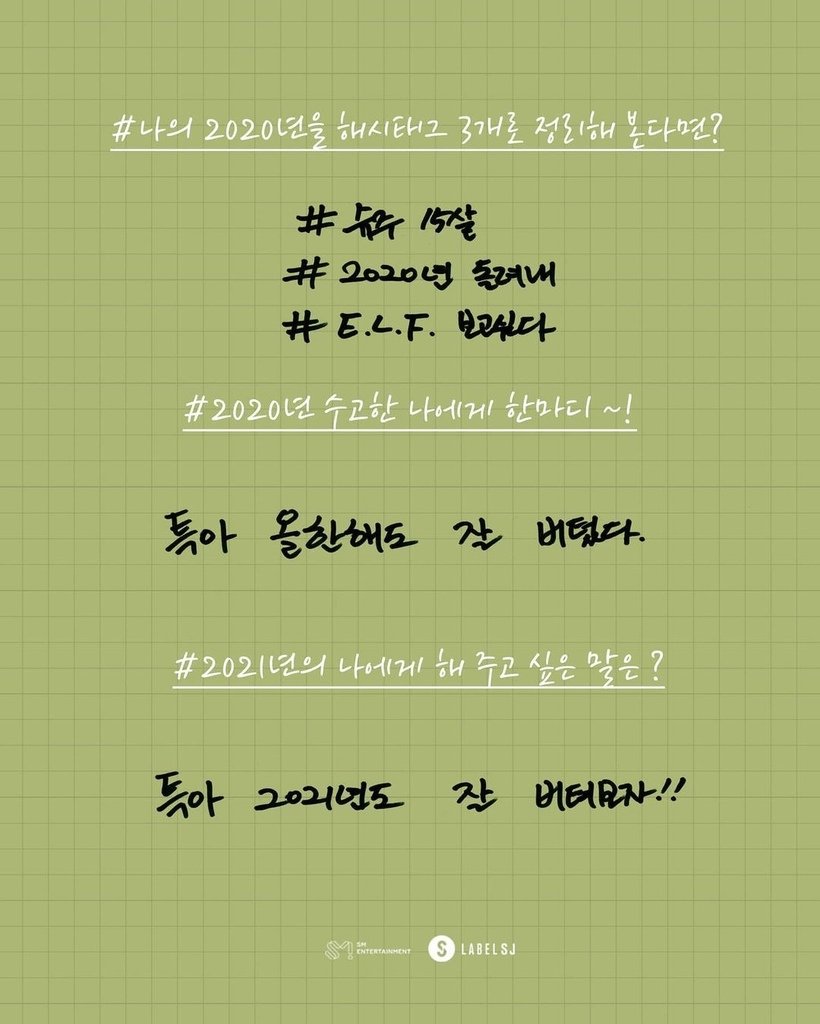 #나의 2020년을 해시태그 3개로 정리해 본다면?
# 슈주 15살
# 2020년 돌려내
# E.L.F. 보고싶다
#2020년 수고한 나에게 한마디 ~!
특아 올한해도 잘 버텼다.
#2021년의 나에게 해 주고 싶은 말은?
특아 2021년도 잘 버텨보자!!
SM ENTERTAINMENT
S LABELSJ